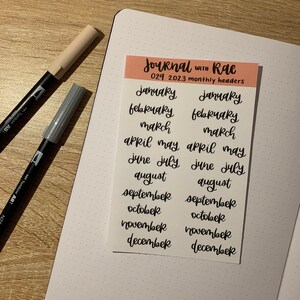 Journal with Rae
029 2023 monthly headers
january january
february february
march march
april may april may
june july june july
august august
september september
october october
november november
december december